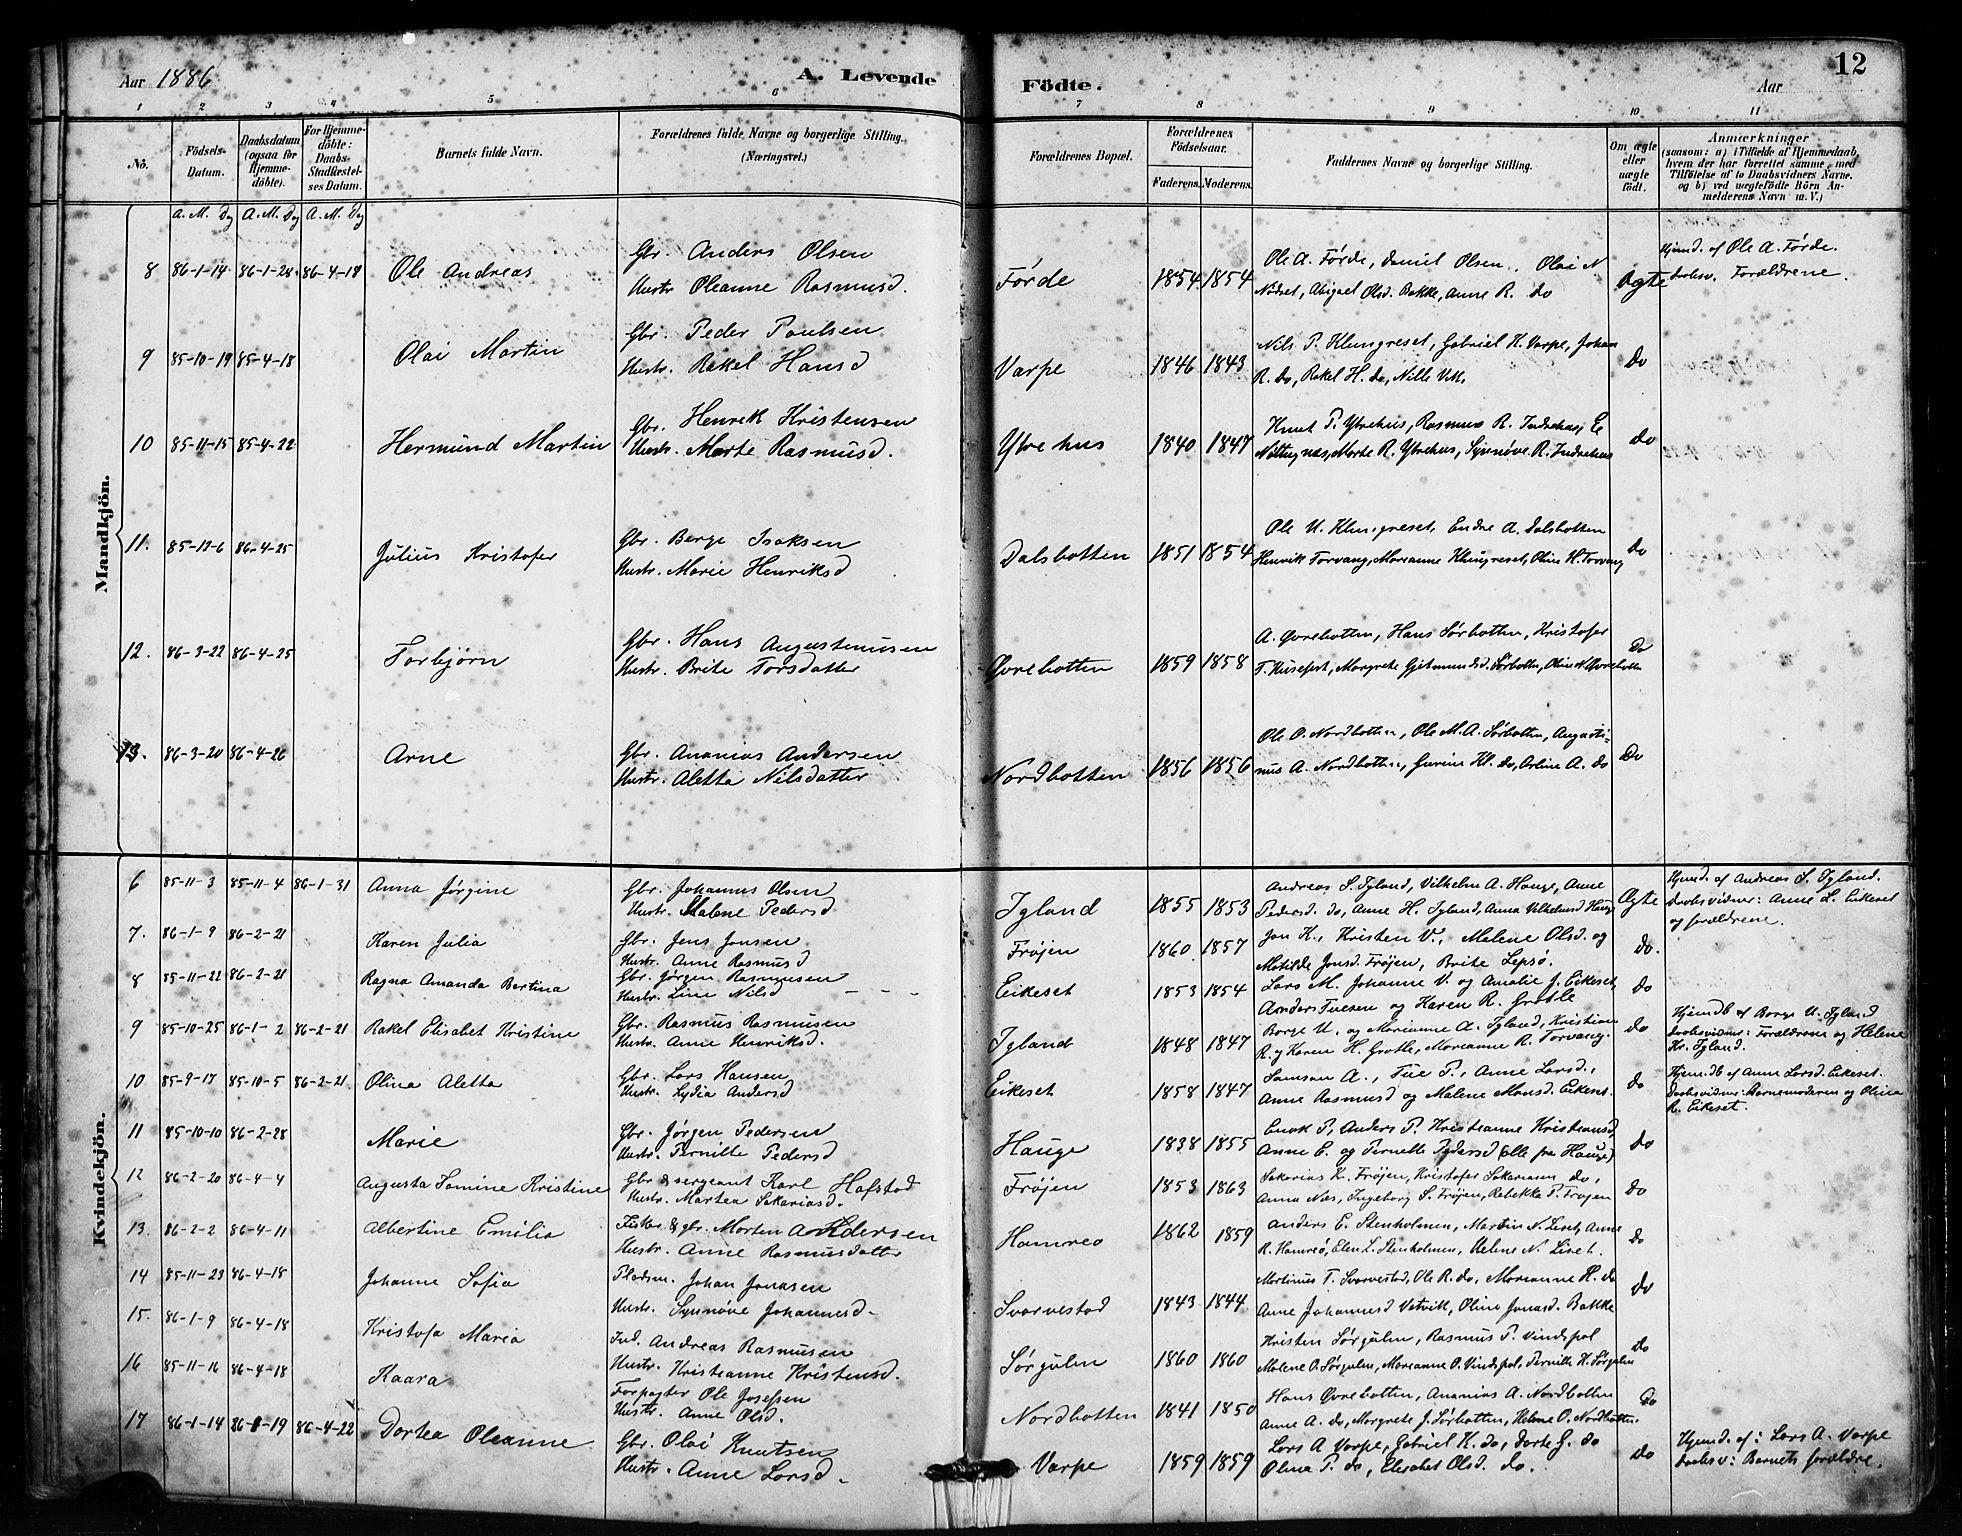 Aar 1886
A. Levende
Födte.
Aar
12
1 2 3 4 5 6 7 8 9 10 11
No.
Födsels-Datum.
Daabsdatum (ogsaa for Hjemme-döbte).
For Hjemme-döbte: Daabs-Stadfæstel-ses Datum.
Barnets fulde Navn.
Forældrenes fulde Navne og borgerlige Stilling. (Næringsvei.)
Forældrenes Bopæl.
Forældrenes Födselsaar.
Faderens. Moderens.
Faddernes Navne og borgerlige Stilling.
Om ægte eller uægte födt.
Anmærkninger
(saasom: a) i Tilfælde af Hjemmedaab, hvem der har forrettet samme, med Tilföielse af to Daabsvidners Navne. og b) ved uægtefödte Börn An-melderens Navn m.V.)
A. M. Dg A. M. Dg A. M. Dg
Mandkjön.
8 86-1-14 86-1-24 86-4-18 Ole Andreas
Gbr. Anders Olsen
Hustr. Oleanne Rasmusd.
Førde 1854 1854
Ole A. Førde, Daniel Olsen, Olai N
Nødset, Abigael Olsd. Bakke, Anne R. do
Ægte
Hjemd. af Ole A. Førde.
Daabsv. Forældrene.
9 85-10-19 85-4-18 Olai Martin
Gbr. Peder Paulsen
Hustr. Rakel Hansd
Varpe 1846 1843
Nils P. Klungreset, Gabriel K. Varpe, Johan
R. do, Rakel H. do, Nille Vik.
Do
10 85-11-15 85-4-22 Hermund Martin
Gbr. Henrik Kristensen
Hustr. Marte Rasmusd.
Ytrehus 1840 1847
Knut P. Ytrehus, Rasmus R. Indrehus, E
Nøttugnæs, Marte R. Ytrehus, Synnøve R. Indrehus
do
11. 85-12-6 86-4-25 Julius Kristofer
Gbr. Berge Isaksen
Hustr. Marie Henriksd
Dalsbotten 1851 1854
Ole U. Klungreset, Endre A. Dalsbotten
Henrik Torvang, Marianne Klungreset, Olina H. Torvang
do
12. 86-3-22 86-4-25 Torbjørn
Gbr. Hans Augustinusen
Hustr. Brite Torsdatter
Øvrebotten 1859 1858
A. Øvrebotten, Hans Sørbotten, Kristofer
T. Husefest, Margrete Gjetmundsd. Sørbotten, Olina N. Øvrebotten
Do
13. 86-3-20 86-4-26 Arne
Gbr. Ananias Andersen
Hustr. Aletta Nilsdatter
Nordbotten 1856 1856
Ole O. Nordbotten, Ole M. A. Sørbotten, Augusti-
nus A. Nordbotten, Gurine Kl. do, Arline A. do
Do
Kvindekjön.
6 85-11-3 85-11-4 86-1-31 Anna Jørgine
Gbr. Johannes Olsen
Hustr. Malene Pedersd
Igland 1855 1853
Andreas S. Igland, Vilhelm A. Hauge, Anne
Pedersd. do, Anne H. Igland, Anna Vilhelmsd Hauge
Ægte
Hjemd. af Andreas S. Igland.
Daabsvidner: Anne L. Eikeset
og forældrene.
7. 86-1-9 86-2-21 Karen Julia
Gbr. Jens Jonsen
Hustr. Anne Rasmusd
Frøjen 1860 1857
Jon K., Kristen V., Malene Olsd. og
Matilde Jonsd. Frøjen, Brite Lepsø.
do.
8 85-11-22 86-2-21 Ragna Amanda Bertina
Gbr. Jørgen Rasmusen
Hustr. Line Nilsd - - -
Eikeset 1853 1854
Lars M. Johanne V. og Amalie J. Eikeset,
Anders Tuesen og Karen R. Grotle
do
9 85-10-25 86-1-2 86-2-21 Rakel Elisabet Kristine
Gbr. Rasmus Rasmusen
Hustr. Anne Henriksd.
Igland 1848 1847
Børge U. og Marianne A. Igland, Kristian
R. og Karen H. Grotle, Marianne R. Torvang.
do
Hjemdb af Børge U. Igland
Daabsvidner: Forældrene og Helene
Kr. Igland.
10 85-9-17 85-10-5 86-2-21 Olina Aletta
Gbr. Lars Hansen
Hustr. Lydia Andersd
Eikeset 1858 1847
Samson A., Tue P., Anne Larsd.,
Anne Rasmusd og Malene Monsd. Eikeset.
do
Hjemdb af Anne Larsd. Eikeset.
Daabsvidner: Barnemoderen og Olina
R. Eikeset.
11 85-10-10 86-2-28 Marie
Gbr. Jørgen Pedersen
Hustr. Pernille Pedersd
Hauge 1838 1855
Enok P., Anders P. Kristianne Kristiansd,
Anne E. og Pernelle Pedersd (alle fra Hauge)
do
12 86-2-20 86-4-4 Augusta Samine Kristine
Gbr & sergeant Karl Hafstad
Hustr. Martea Sakariasd.
Frøjen 1853 1863
Sakarias K. Frøjen, Kristofer Sakariasen do,
Anna Næs, Ingeborg S. Frøjen, Rebekka P. Frøjen
do
13. 86-2-2 86-4-11 Albertine Emilia
Fisker & gbr. Morten Andersen
Hustr. Anne Rasmusdatter
Hamreø 1862 1859
Anders E. Stenholmen, Martin N. Liset, Anne
R. Hamreø, Elen L. Stenholmen, Helene N. Liset.
do
14 85-11-23 86-4-18 Johanne Sofia
Pladsm. Johan Jonasen
Hustr. Synnøve Johannesd.
Svarvestad 1843 1844
Martinus T. Svarvestad, Ole R. do, Marianne H. do
Anne Johannesd Vetvik, Olina Jonasd. Bakke
do
15. 86-1-9 86-4-18 Kristofa Maria
Ind. Andreas Rasmusen
Hustr. Kristianne Kristensd.
Sørgulen 1860 1860
Kristen Sørgulen, Rasmus P. Vindspol
Malene O. Sørgulen, Marianne O. Vindspol, Pernille K. Sørgulen
do
16 85-11-16 86-4-18 Kaara
Forpagter Ole Josefsen
Hustr. Anne Olsd.
Nordbotten 1841 1850
Hans Øvrebotten, Ananias A. Nordbotten
Anne A. do, Margrete J. Sørbotten, Helene O. Nordbotten.
do
17 86-1-14 86-1-19 86-4-22 Dortea Oleanne
Gbr. Olai Knutsen
Hustr. Anne Larsd.
Varpe 1859 1859
Lars A Varpe, Gabriel K. do, Dorte G. do
Olina P. do, Elisabet Olsd. do.
do
Hjemd. af: Lars A. Varpe
Daabsv: Barnets forældre.